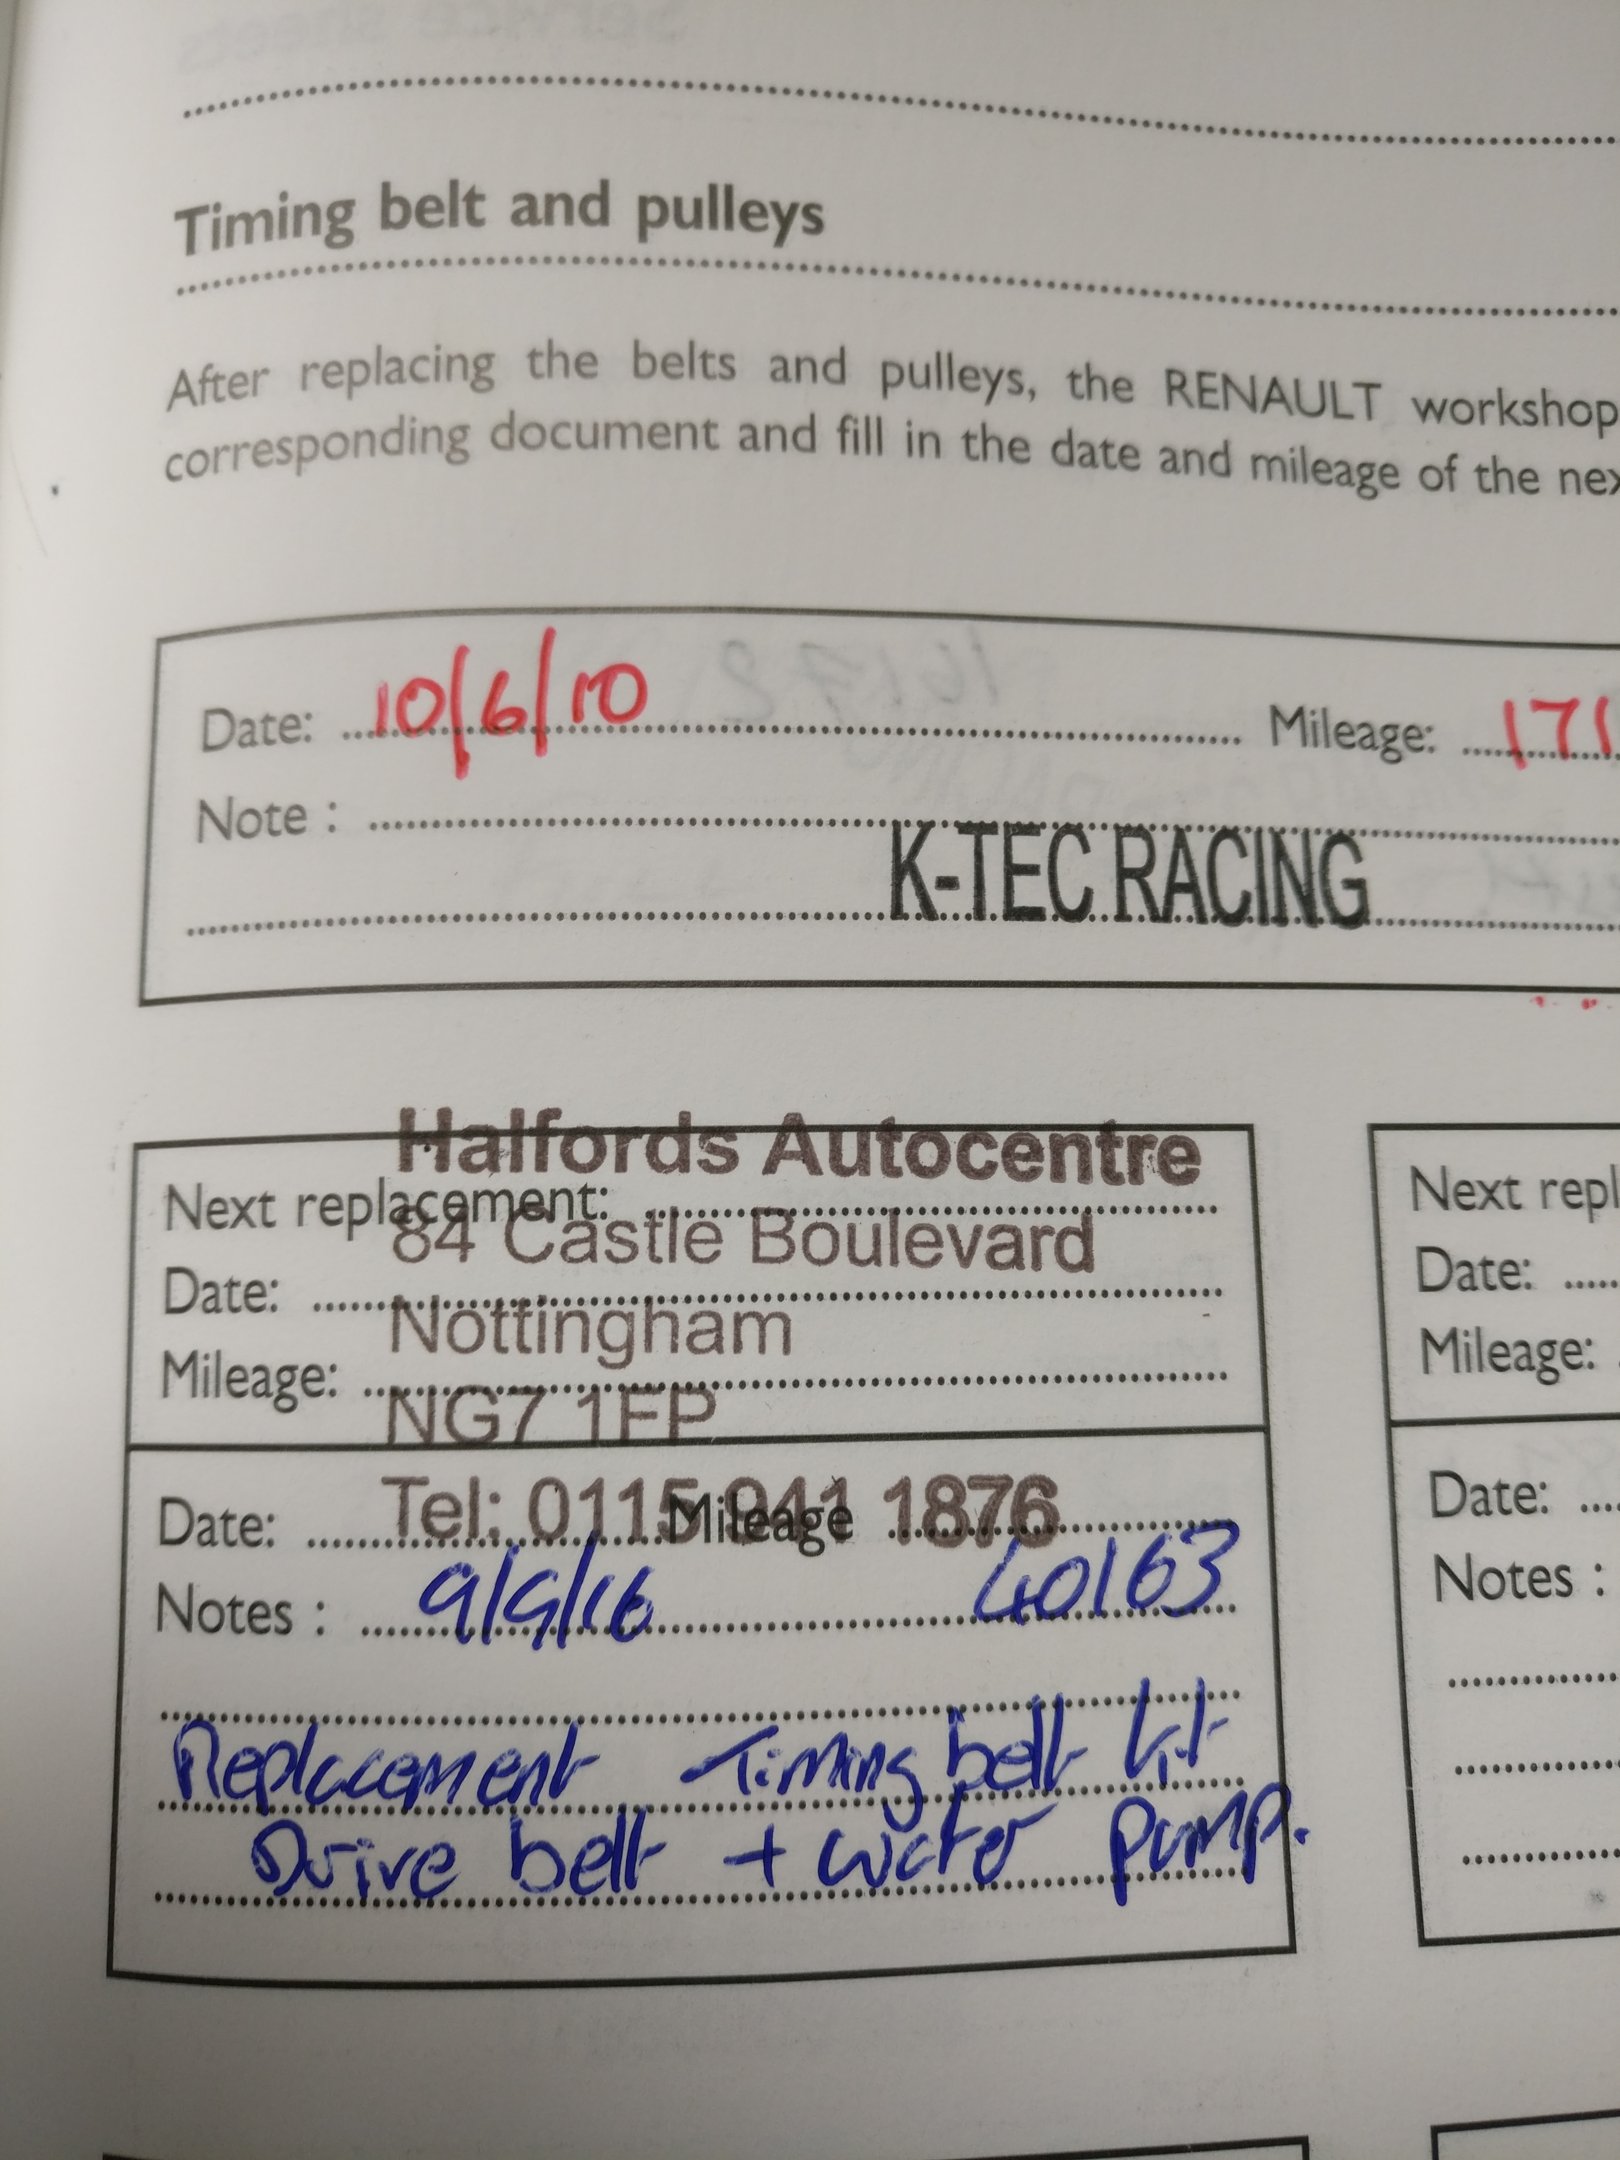 Timing belt and pulleys
After replacing the belts and pulleys, the RENAULT workshop
corresponding document and fill in the date and mileage of the nex
Date: 10/6/10 Mileage: 171
Note :
K-TEC RACING
Halfords Autocentre
Next replacement:
84 Castle Boulevard
Date:
Nottingham
Mileage:
NG7 1FP
Tel: 0115 941 1876
Date: Mileage
9/9/16 40163
Notes :
Replacement Timing belt kit
Drive belt + water pump.
Next repl
Date:
Mileage:
Date:
Notes :